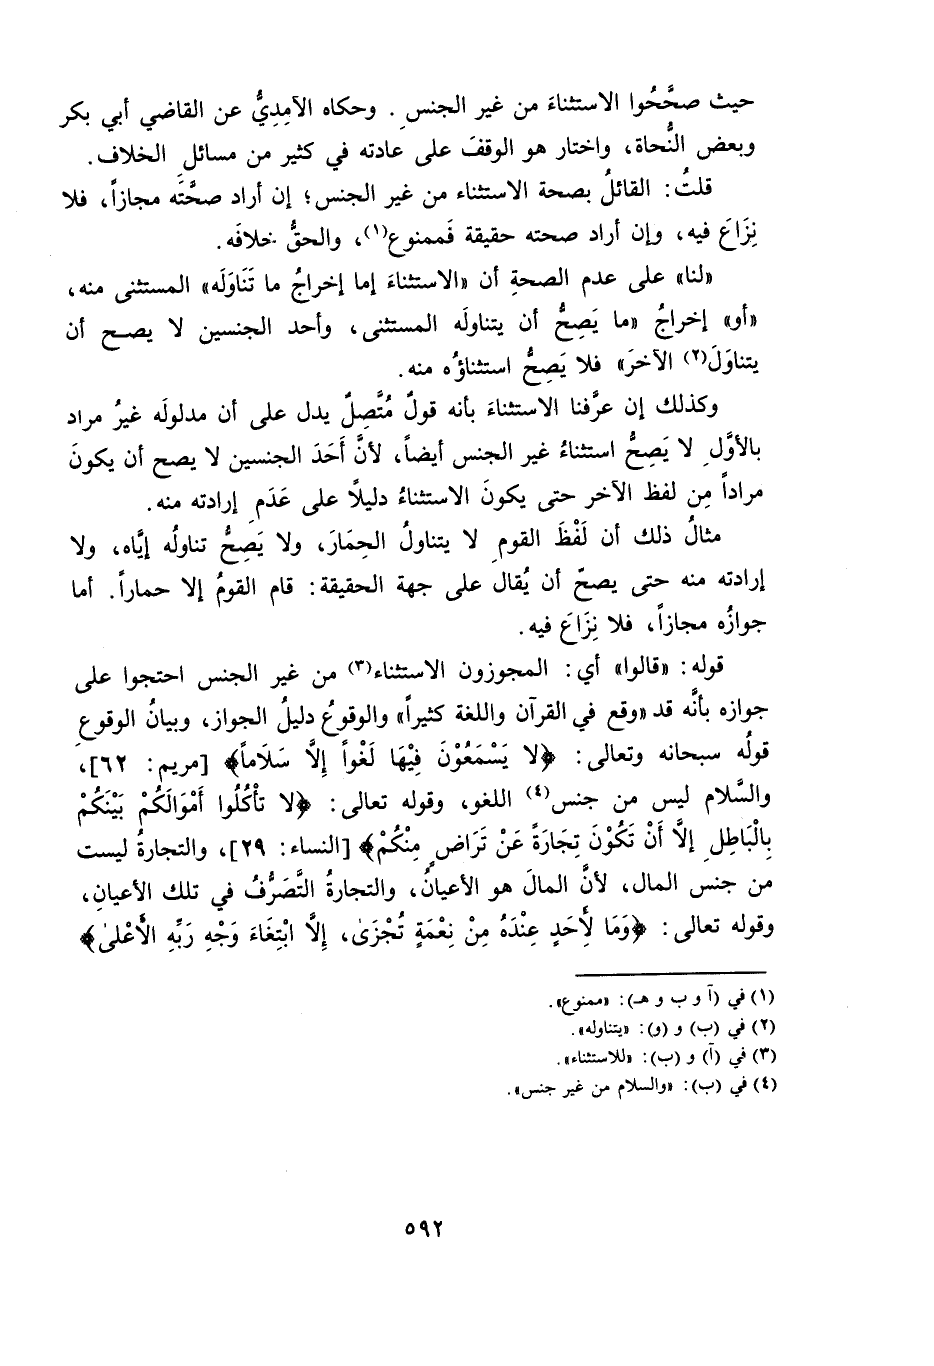 حيث صحَّحُوا الاستثناءَ من غير الجنسِ. وحكاه الآمِدِيُّ عن القاضي أبي بكر
وبعض النُّحاة، واختار هو الوقفَ على عادته في كثير من مسائلِ الخلاف.
قلتُ: القائلُ بصحة الاستثناء من غير الجنس؛ إن أراد صحَّتَه مجازاً، فلا
نِزَاعَ فيه، وإن أراد صحته حقيقة فَممنوع(١)، والحقُّ خلافَه.
«لنا» على عدم الصحةِ أن «الاستثناءَ إما إخراجُ ما تَنَاوَلَه» المستثنى منه،
«أو» إخراجُ «ما يَصِحُّ أن يتناولَه المستثنى، وأحد الجنسين لا يصح أن
يتناوَلَ(٢) الآخرَ» فلا يَصِحُّ استثناؤُه منه.
وكذلك إن عرَّفنا الاستثناءَ بأنه قولٌ مُتَّصِلٌ يدل على أن مدلولَه غيرُ مراد
بالأوَّلِ لا يَصِحُّ استثناءُ غير الجنس أيضاً، لأنَّ أَحَدَ الجنسين لا يصح أن يكونَ
مراداً مِن لفظ الآخر حتى يكونَ الاستثناءُ دليلاً على عَدَمِ إرادته منه.
مثالُ ذلك أن لَفْظَ القومِ لا يتناولُ الحِمَارَ، ولا يَصِحُّ تناولُه إيَّاه، ولا
إرادته منه حتى يصحّ أن يُقال على جهة الحقيقة: قام القومُ إلا حماراً. أما
جوازُه مجازاً، فلا نِزَاعَ فيه.
قوله: «قالوا» أي: المجوزون الاستثناء(٣) من غير الجنس احتجوا على
جوازه بأنَّه قد «وقع في القرآن واللغة كثيراً» والوقوعُ دليلُ الجواز، وبيانُ الوقوعِ
قولُه سبحانه وتعالى: ﴿لا يَسْمَعُوْنَ فِيْهَا لَغْواً إِلاَّ سَلَاماً﴾ [مريم: ٦٢]،
والسَّلام ليس من جنس(٤) اللغو، وقوله تعالى: ﴿لا تأْكُلُوا أَمْوَالَكُمْ بَيْنَكُمْ
بِالْبَاطِلِ إلَّا أَنْ تَكُوْنَ تِجَارَةً عَنْ تَرَاضٍ مِنْكُمْ﴾ [النساء: ٢٩]، والتجارةُ ليست
من جنس المال، لأنَّ المالَ هو الأعيانُ، والتجارةُ التَّصَرُّفُ في تلك الأعيانِ،
وقوله تعالى: ﴿وَمَا لأَِحَدٍ عِنْدَهُ مِنْ نِعْمَةٍ تُجْزَىٰ، إِلَّا ابْتِغَاءَ وَجْهِ رَبِّهِ الأَعْلىٰ﴾
(١) في (آ و ب و هـ): «ممنوع».
(٢) في (ب) و (و): «يتناوله».
(٣) في (آ) و (ب): «للاستثناء».
(٤) في (ب): «والسلام من غير جنس».
٥٩٢